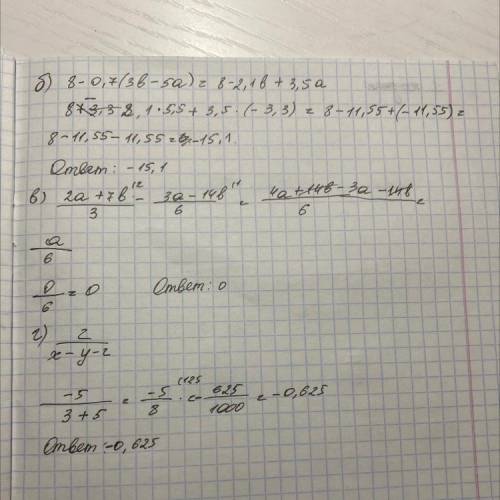 б) 8 - 0,7(3в - 5а) = 8 - 2,1в + 3,5а
8 - 2,1 · 5,5 + 3,5 · (-3,3) = 8 - 11,55 + (-11,55) =
8 - 11,55 - 11,55 = -15,1.
Ответ: -15,1
в) (2а + 7в)/3 - (3а - 14в)/6 = (4а + 14в - 3а - 14в)/6 =
а/6
0/6 = 0 Ответ: 0
г) z/(x - y - z)
-5/(3 + 5) = -5/8 = -625/1000 = -0,625
Ответ: -0,625